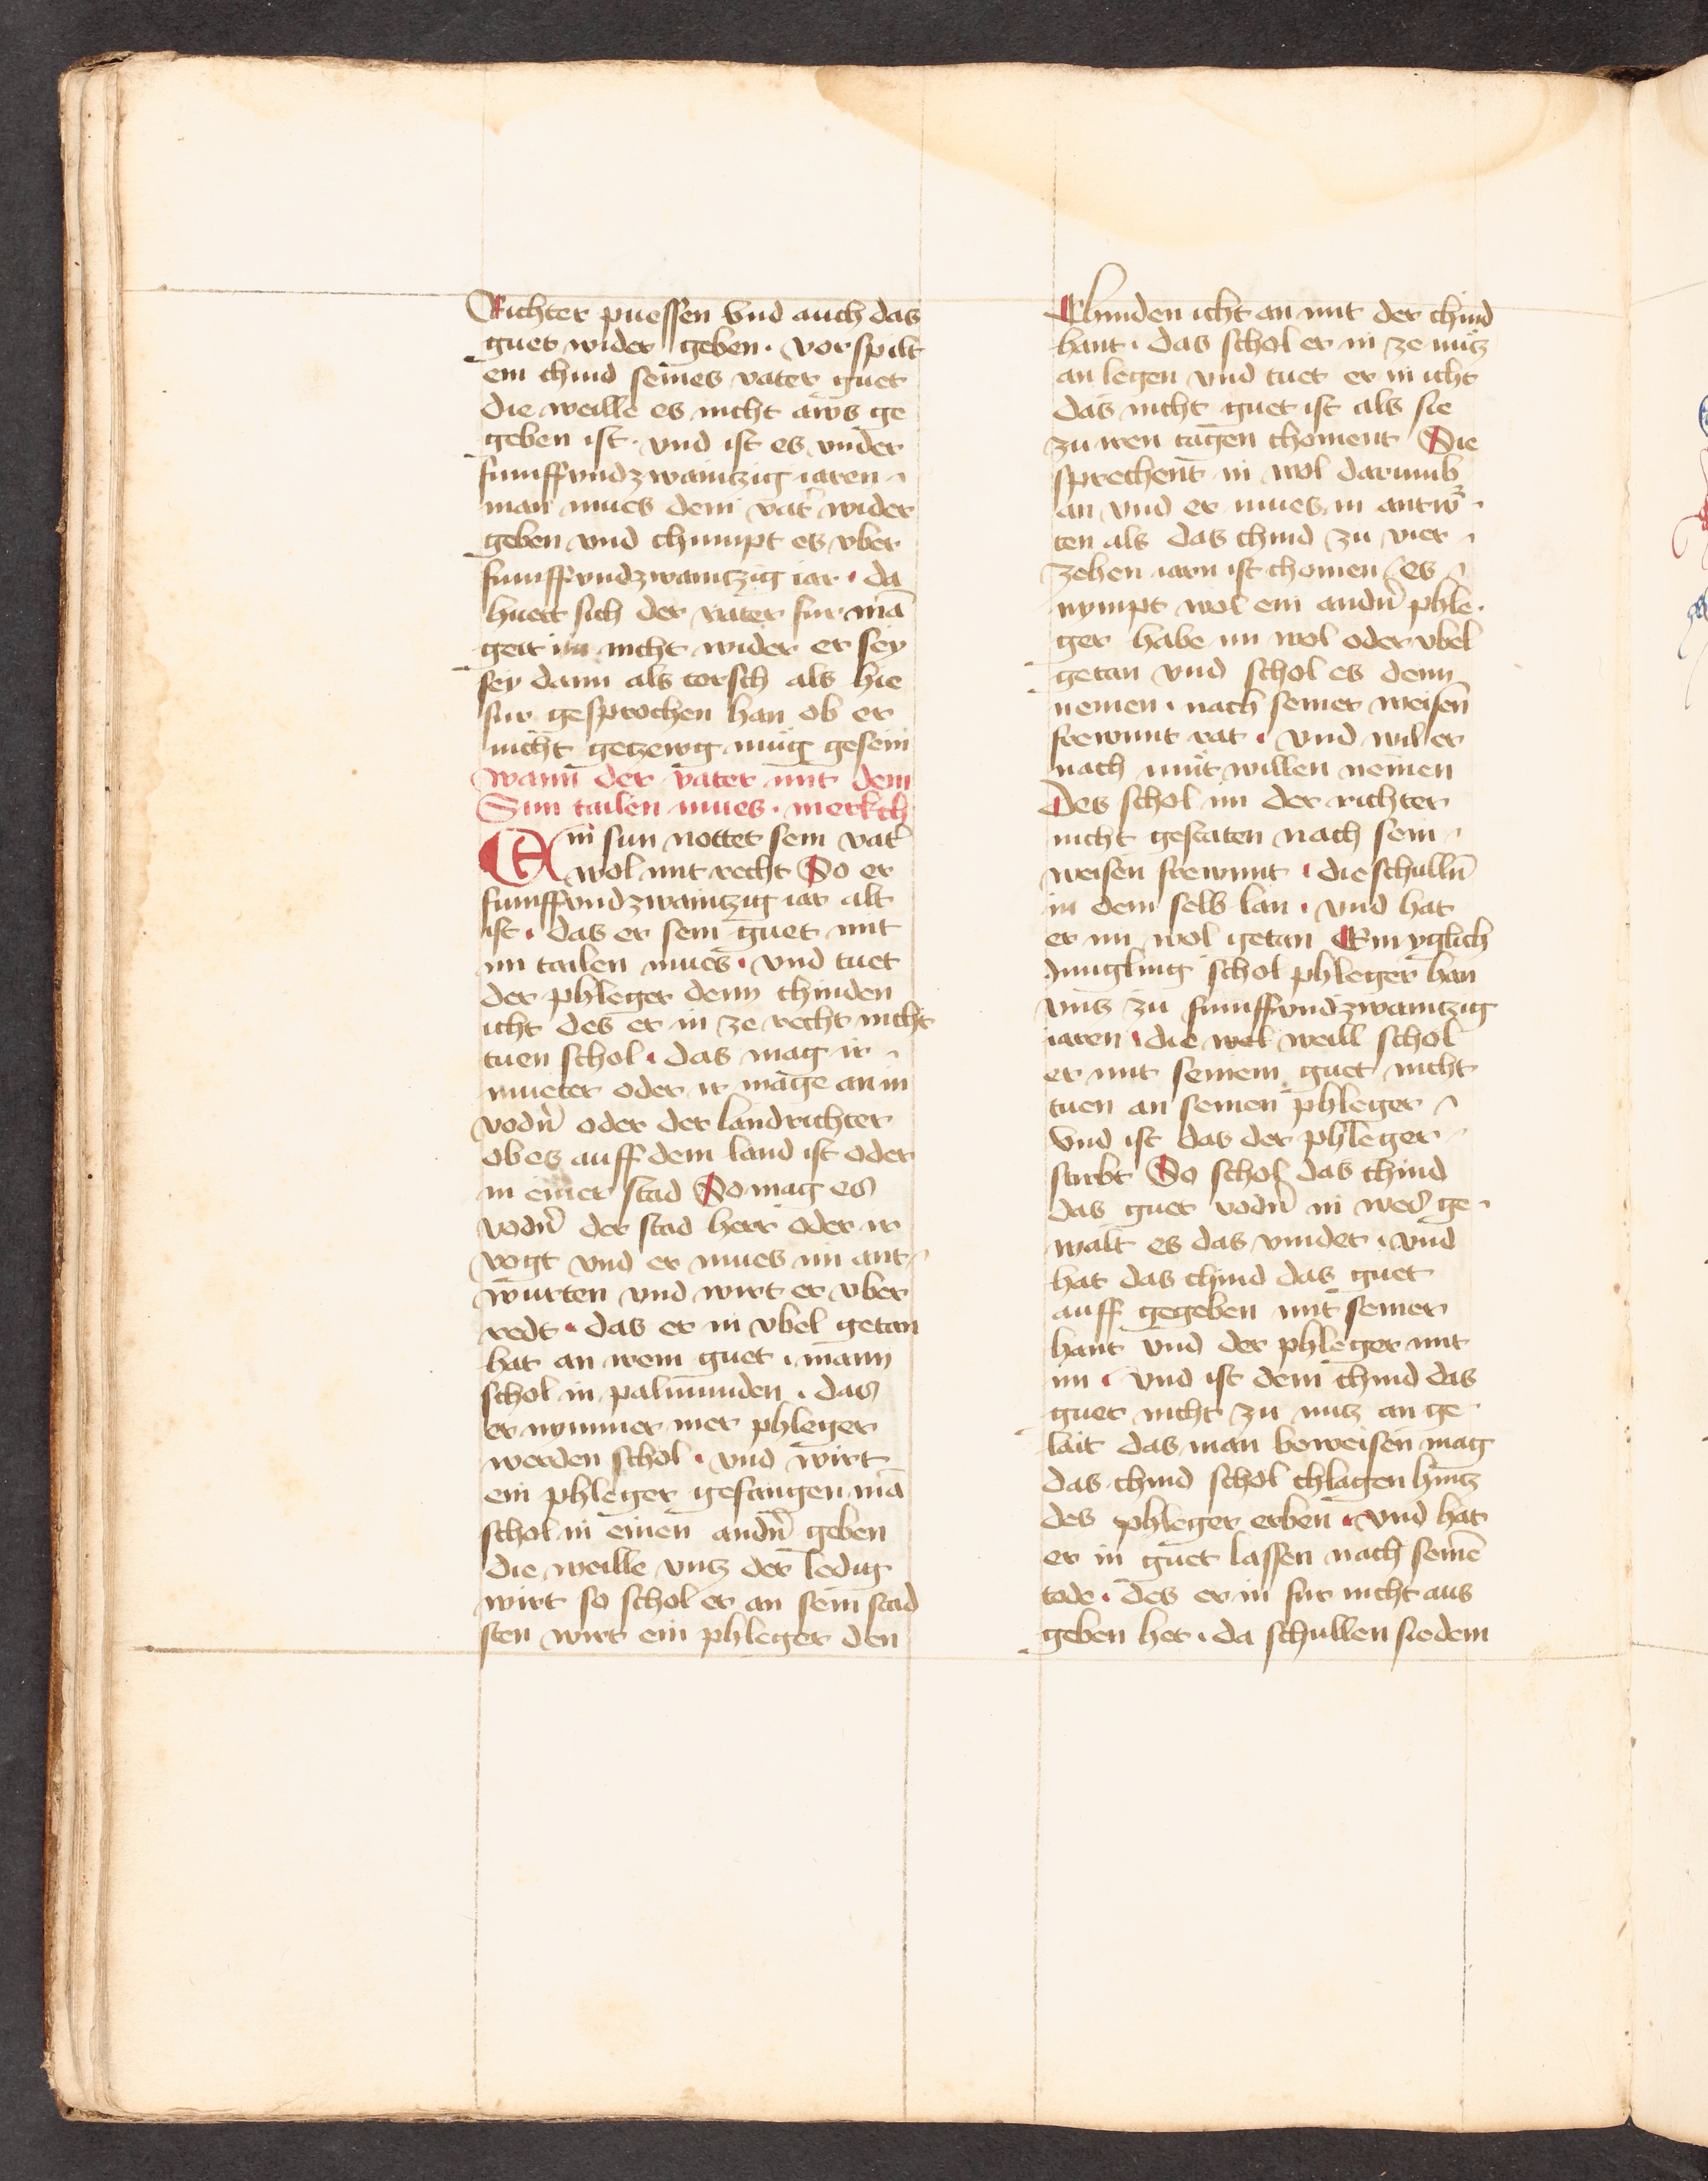 Richter puessen vnd auch das
guet wider geben · vorspilt
ein chind seines vater guet
die weille es nicht aws ge
geben ist · vnd ist es vnder
fumffvndzwaintzig iaren
man mues dem vat̉ wider
geben vnd chumpt es vber
fumffvndzwaintzig iar · da
huett sich der vater fur mā
geit im nicht wider er sey
sey dann als torsch als hie
fur gesprochen han ob er
nicht getzewg mug gesein
wann der vater mit dem
Sun tailen mues · merkch
Ein sun nottet sein vat̉
wol mit recht So er
fumffvndzwaintzig iar alt
ist · das er sein guet mit
im tailen mues · vnd tuet
der phleger denn chinden
icht des er in ze recht nicht
tuen schol · das mag ir
mueter oder ir mage an in
vodn̉ oder der landrichter
ob es auff dem land ist oder
in einer stad So mag es
vodn̉ der stad herr oder ir
vogt vnd er mues im ant
wurten vnd wirt er vber
redt · das er in vbel getan
hat an irem guet · mann
schol in palmunden · das
er nymmer mer phleger
werden schol · vnd wirt
ein phleger gefangen mā
schol in einen andn̉ geben
die weille vntz der ledig
wirt so schol er an sein stad
sten wirt ein phleger den
Chinden icht an mit der chind
hant · das schol er in ze nutz
an legen vnd tuet er in icht
das nicht guet ist als sie
zu iren tagen choment Sie
sprechent in wol darumb
an vnd er mues in antw̉
ten als das chind zu vier
zehen iarn ist chomen es
nympt wol ein andn̉ phle
ger habe im wol oder vbel
getan vnd schol es denn
nemen · nach seiner weisen
frewnnt rat · vnd wil er
nach mut willen nemen
Des schol im der richter
nicht gestaten nach sein
weisen frewnnt · die schulln̄
in dem selb lan · vnd hat
er im wol getan Ein yglich
Jungling schol phleger han
vntz zu fumffvndzwaintzig
iaren · die wel weill schol
er mit seinem guet nicht
tuen an seinen phleger
vnd ist das der phleger
stirbt So schol das chind
das guet vodn̉ in wes ge
walt es das vindet · vnd
hat das chind das guet
auff gegeben mit seiner
hant vnd der phleger mit
im · vnd ist dem chind das
guet nicht zu nutz an ge
lait das man beweisen mag
das chind schol chlagen hintz
des phleger erben · vnd hat
er in guet lassen nach seinē
tode · des er in fur nicht aus
geben het · da schullen sie dem